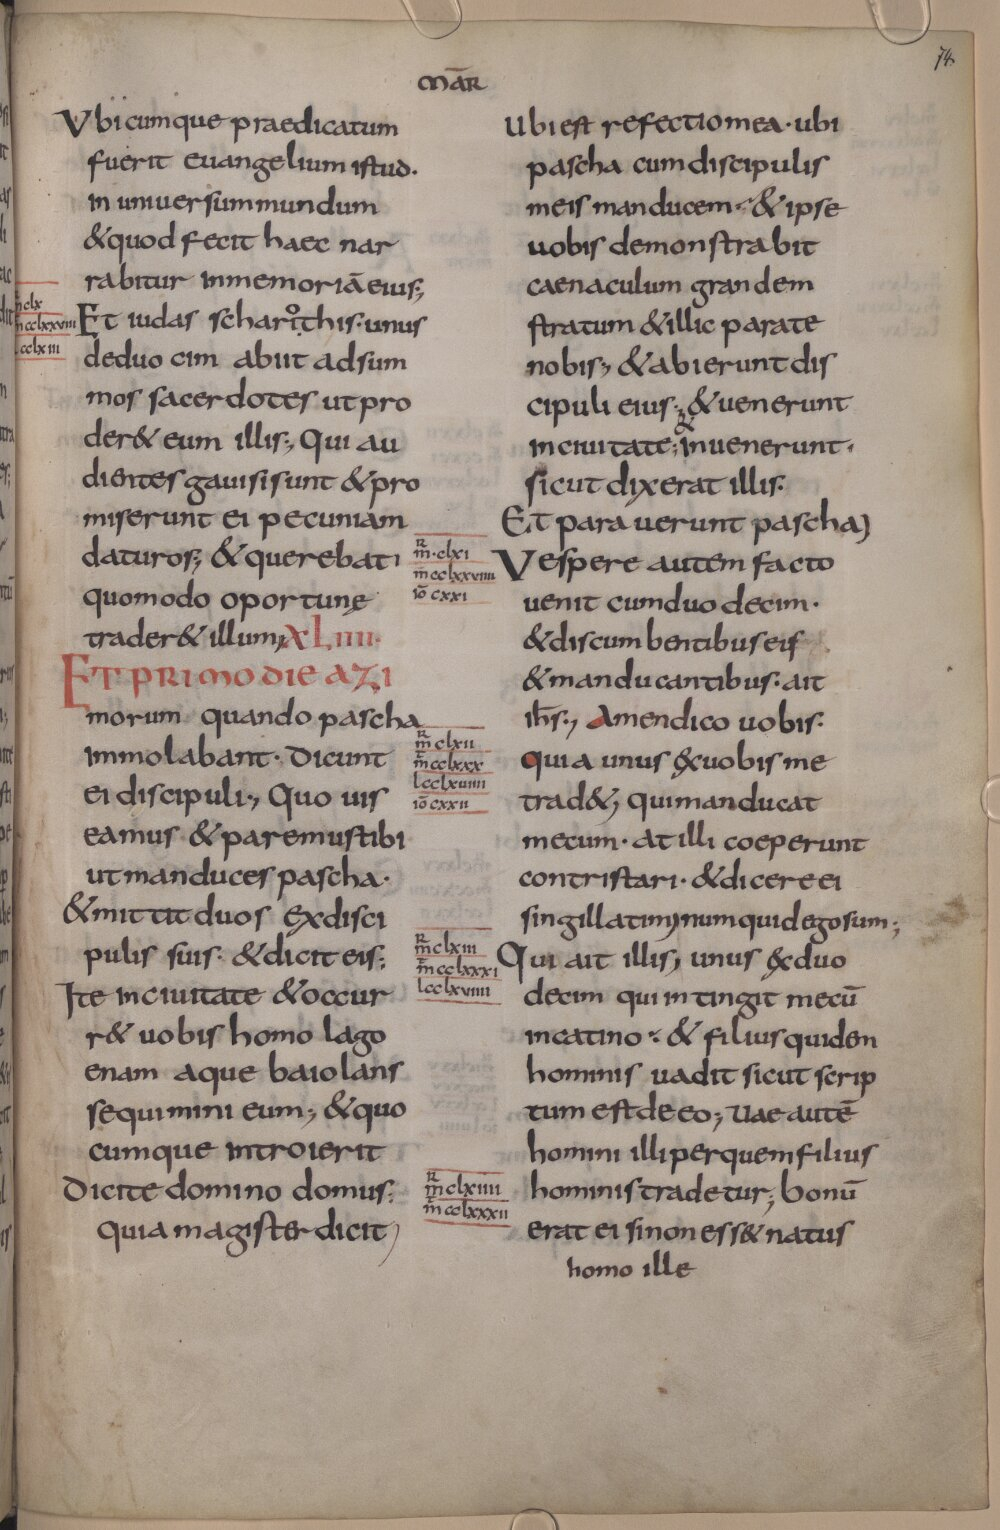 74.
mār
Vbicumque praedicatum
fuerit euangelium istud.
in uniuersum mundum
& quod fecit haec nar
rabitur in memoriā eius;
m̄ clx
m̄ cclxxviii
l cclxiii
Et iudas schariothis. unus
de duo cim abiit ad sum
mos sacerdotes ut pro
der& eum illis; Qui au
dientes gauisi sunt & pro
miserunt ei pecuniam
daturos; & querebat
quomodo oportune
trader& illum; XLIIII.
ET PRIMO DIE AZI
morum quando pascha
immolabant. Dicunt
ei discipuli; Quo uis
eamus & paremus tibi
ut manduces pascha.
& mittit duos ex disci
pulis suis. & dicit eis;
Ite in ciuitate & occur
r& uobis homo lago
enam aque baiolans
sequimini eum; & quo
cumque introierit
Dicite domino domus;
quia magister dicit
Ubi est refectio mea. ubi
pascha cum discipulis
meis manducem. & ipse
uobis demonstrabit
caenaculum grandem
stratum & illic parate
nobis; & abierunt dis
cipuli eius; & uenerunt
in ciuitate; & inuenerunt.
sicut dixerat illis.
Et parauerunt pascha
m̄. clxi
m̄ cclxxviiii
iō cxxi
Vespere autem facto
uenit cum duodecim.
& discumbentibus eis
& manducantibus. ait
ih̄s; Amen dico uobis.
m̄ clxii
m̄ cclxxx
l cclxviiii
iō cxxii
quia unus ex uobis me
trad&; qui manducat
mecum. at illi coeperunt
contristari. & dicere ei
singillatim; numquid ego sum;
m̄ clxiii
m̄ cclxxxi
l cclxviiii
Qui ait illis; unus ex duo
decim qui intingit mecū
in catino. & filius quidem
hominis uadit sicut scrip
tum est de eo; Uae autē
homini illi per quem filius
m̄ clxiiii
m̄ cclxxxii
hominis tradetur; bonū
erat ei si non ess& natus
homo ille